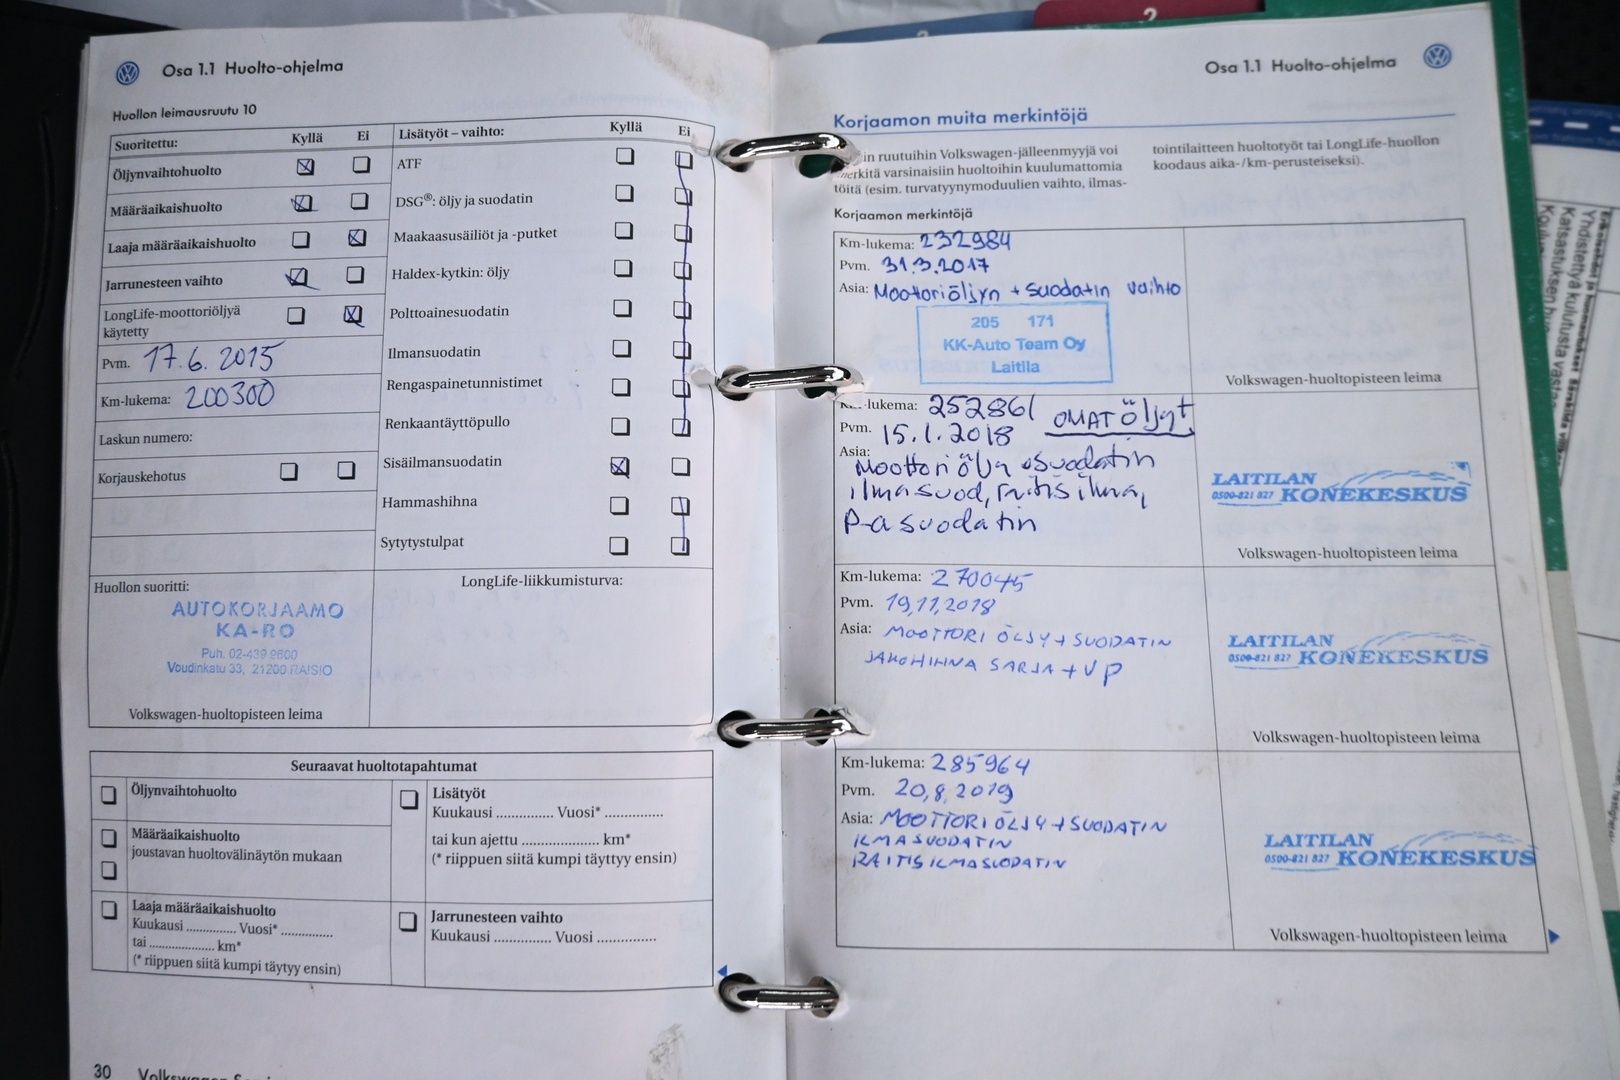 Osa 1.1 Huolto-ohjelma
Huollon leimausruutu 10
Suoritettu: Kyllä Ei
Öljynvaihtohuolto
Määräaikaishuolto
Laaja määräaikaishuolto
Jarrunesteen vaihto
LongLife-moottoriöljyä
käytetty
Pvm. 17.6.2015
Km-lukema: 200300
Laskun numero:
Korjauskehotus
Lisätyöt – vaihto: Kyllä Ei
ATF
DSG®: öljy ja suodatin
Maakaasusäiliöt ja -putket
Haldex-kytkin: öljy
Polttoainesuodatin
Ilmansuodatin
Rengaspainetunnistimet
Renkaantäyttöpullo
Sisäilmansuodatin
Hammashihna
Sytytystulpat
Huollon suoritti:
AUTOKORJAAMO
KA-RO
Puh. 02-439 9600
Voudinkatu 33, 21200 RAISIO
Volkswagen-huoltopisteen leima
LongLife-liikkumisturva:
Seuraavat huoltotapahtumat
Öljynvaihtohuolto
Määräaikaishuolto
joustavan huoltovälinäytön mukaan
Laaja määräaikaishuolto
Kuukausi .............. Vuosi* ..............
tai .................. km*
(* riippuen siitä kumpi täytyy ensin)
Lisätyöt
Kuukausi ............... Vuosi* ...............
tai kun ajettu .................... km*
(* riippuen siitä kumpi täyttyy ensin)
Jarrunesteen vaihto
Kuukausi ............... Vuosi ...............
30
Osa 1.1 Huolto-ohjelma
Korjaamon muita merkintöjä
in ruutuihin Volkswagen-jälleenmyyjä voi
merkitä varsinaisiin huoltoihin kuulumattomia
töitä (esim. turvatyynymoduulien vaihto, ilmas-
tointilaitteen huoltotyöt tai LongLife-huollon
koodaus aika-/km-perusteiseksi).
Korjaamon merkintöjä
Km-lukema: 232984
Pvm. 31.3.2017
Asia: Moottoriöljyn + suodatin vaihto
205 171
KK-Auto Team Oy
Laitila
Volkswagen-huoltopisteen leima
Km-lukema: 252861 OMAT Öljyt
Pvm. 15.1.2018
Asia:
Moottoriöljy suodatin
ilmasuod, raitisilma,
P-a suodatin
LAITILAN
0500-821 827 KONEKESKUS
Volkswagen-huoltopisteen leima
Km-lukema: 270045
Pvm. 19,11,2018
Asia: MOOTTORI ÖLJY + SUODATIN
JAKOHIHNA SARJA + VP
LAITILAN
0500-821 827 KONEKESKUS
Volkswagen-huoltopisteen leima
Km-lukema: 285964
Pvm. 20,8,2019
Asia: MOOTTORIÖLJY + SUODATIN
ILMASUODATIN
RAITISILMASUODATIN
LAITILAN
0500-821 827 KONEKESKUS
Volkswagen-huoltopisteen leima